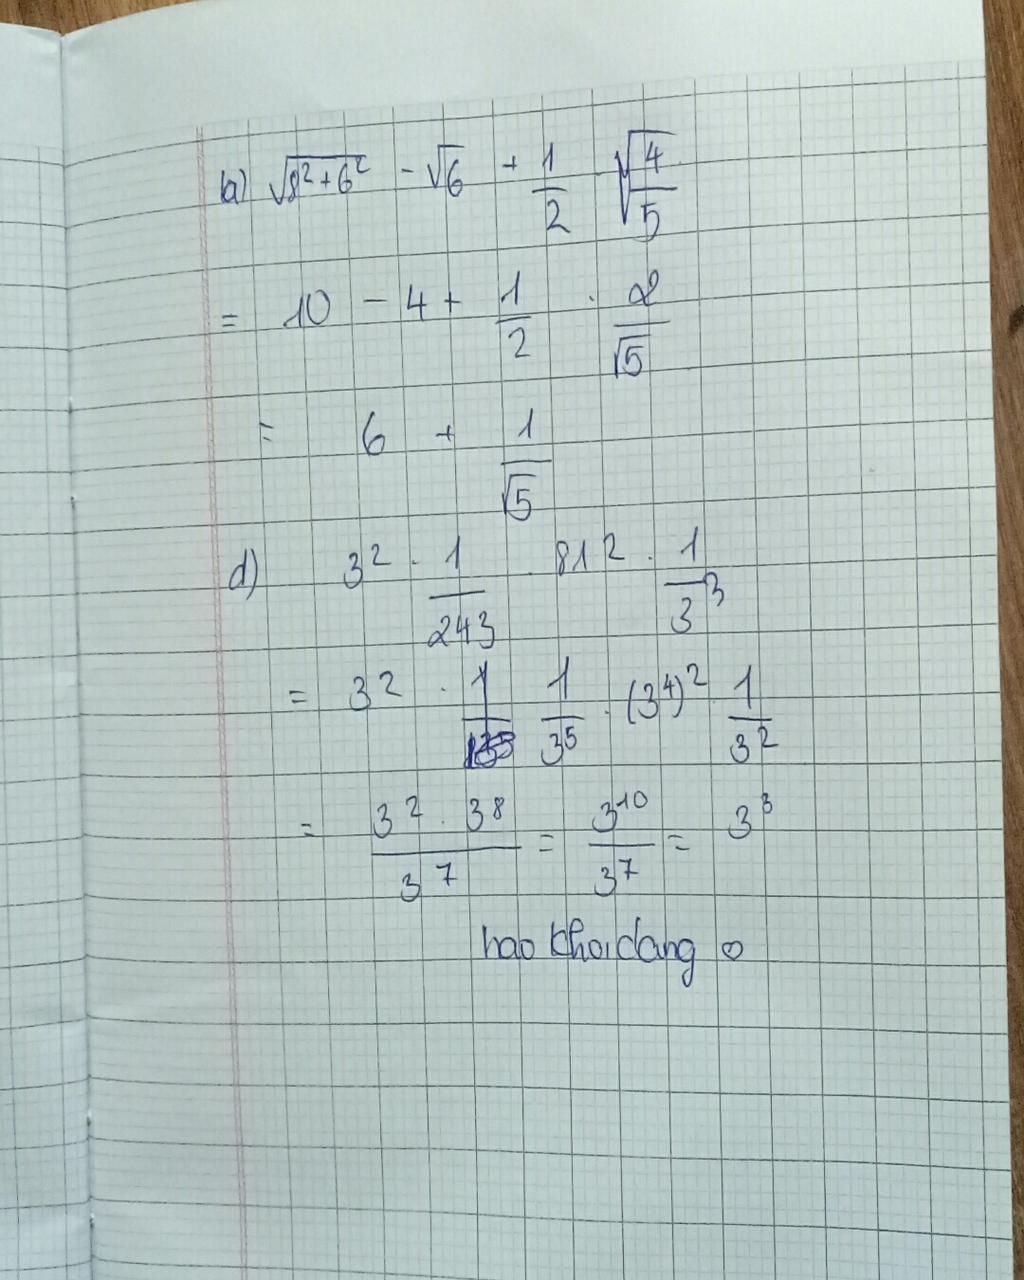 b) √(8²+6²) - √6 + 1/2 · √(4/5)
= 10 - 4 + 1/2 · 2/√5
= 6 + 1/√5
d) 3² · 1/243 · 81² · 1/3³
= 3² · 1/3⁵ · (3⁴)² 1/3²
= 3² · 3⁸ / 3⁷ = 3¹⁰/3⁷ = 3³
hao khoidang